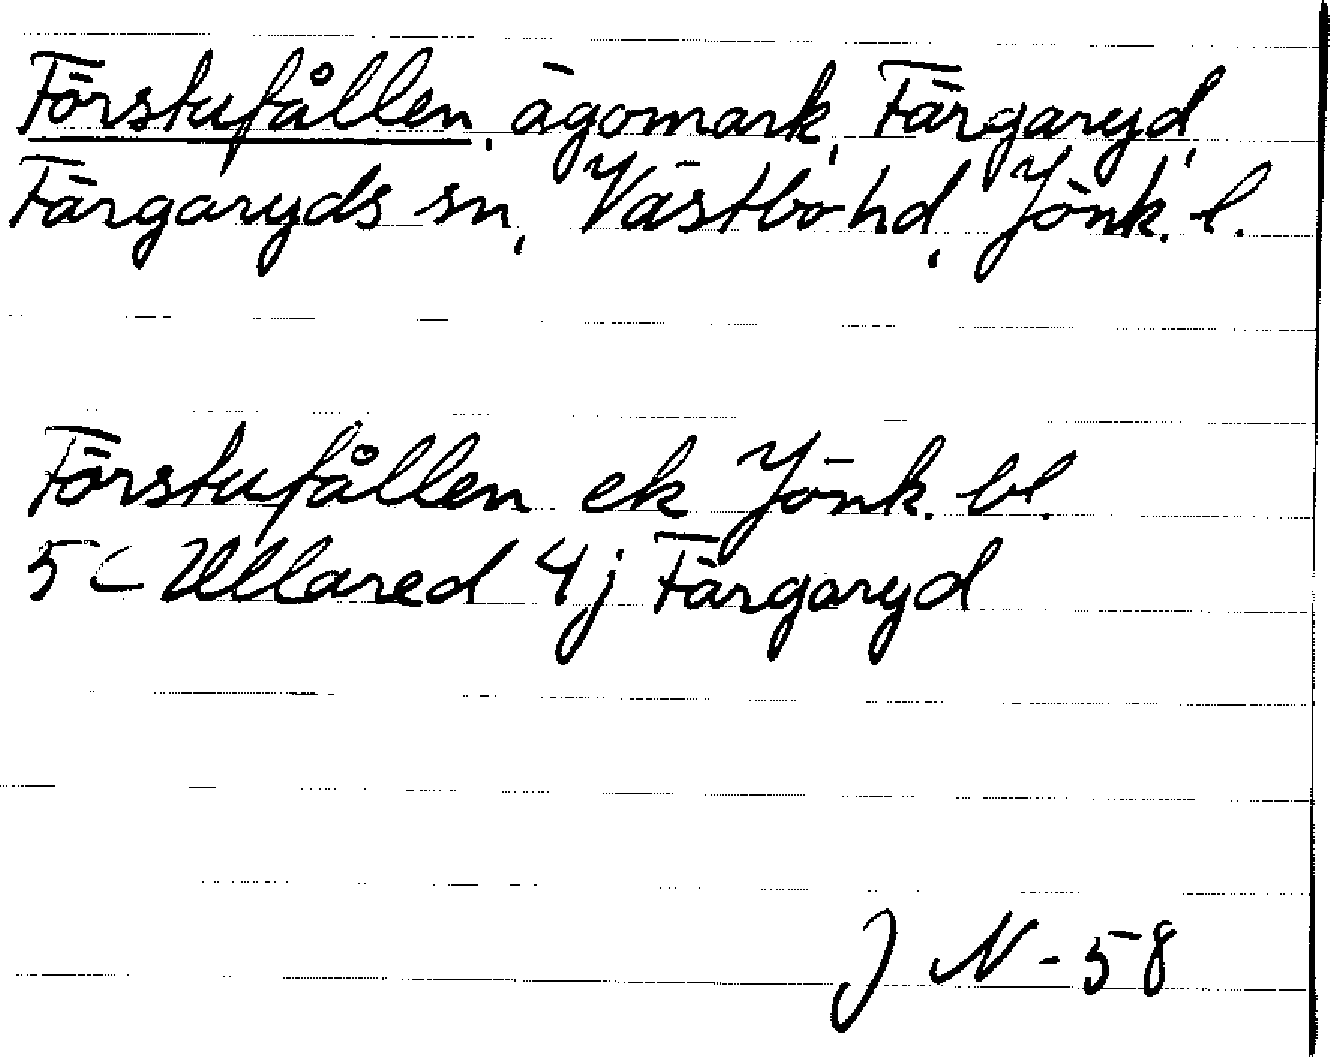 Förstufållen, ägomark, Färgaryd,
Färgaryds sn, Västbo hd, Jönk. l.
Förstufållen ek Jönk. bl.
5 C Ullared 4j Färgaryd
J N - 58